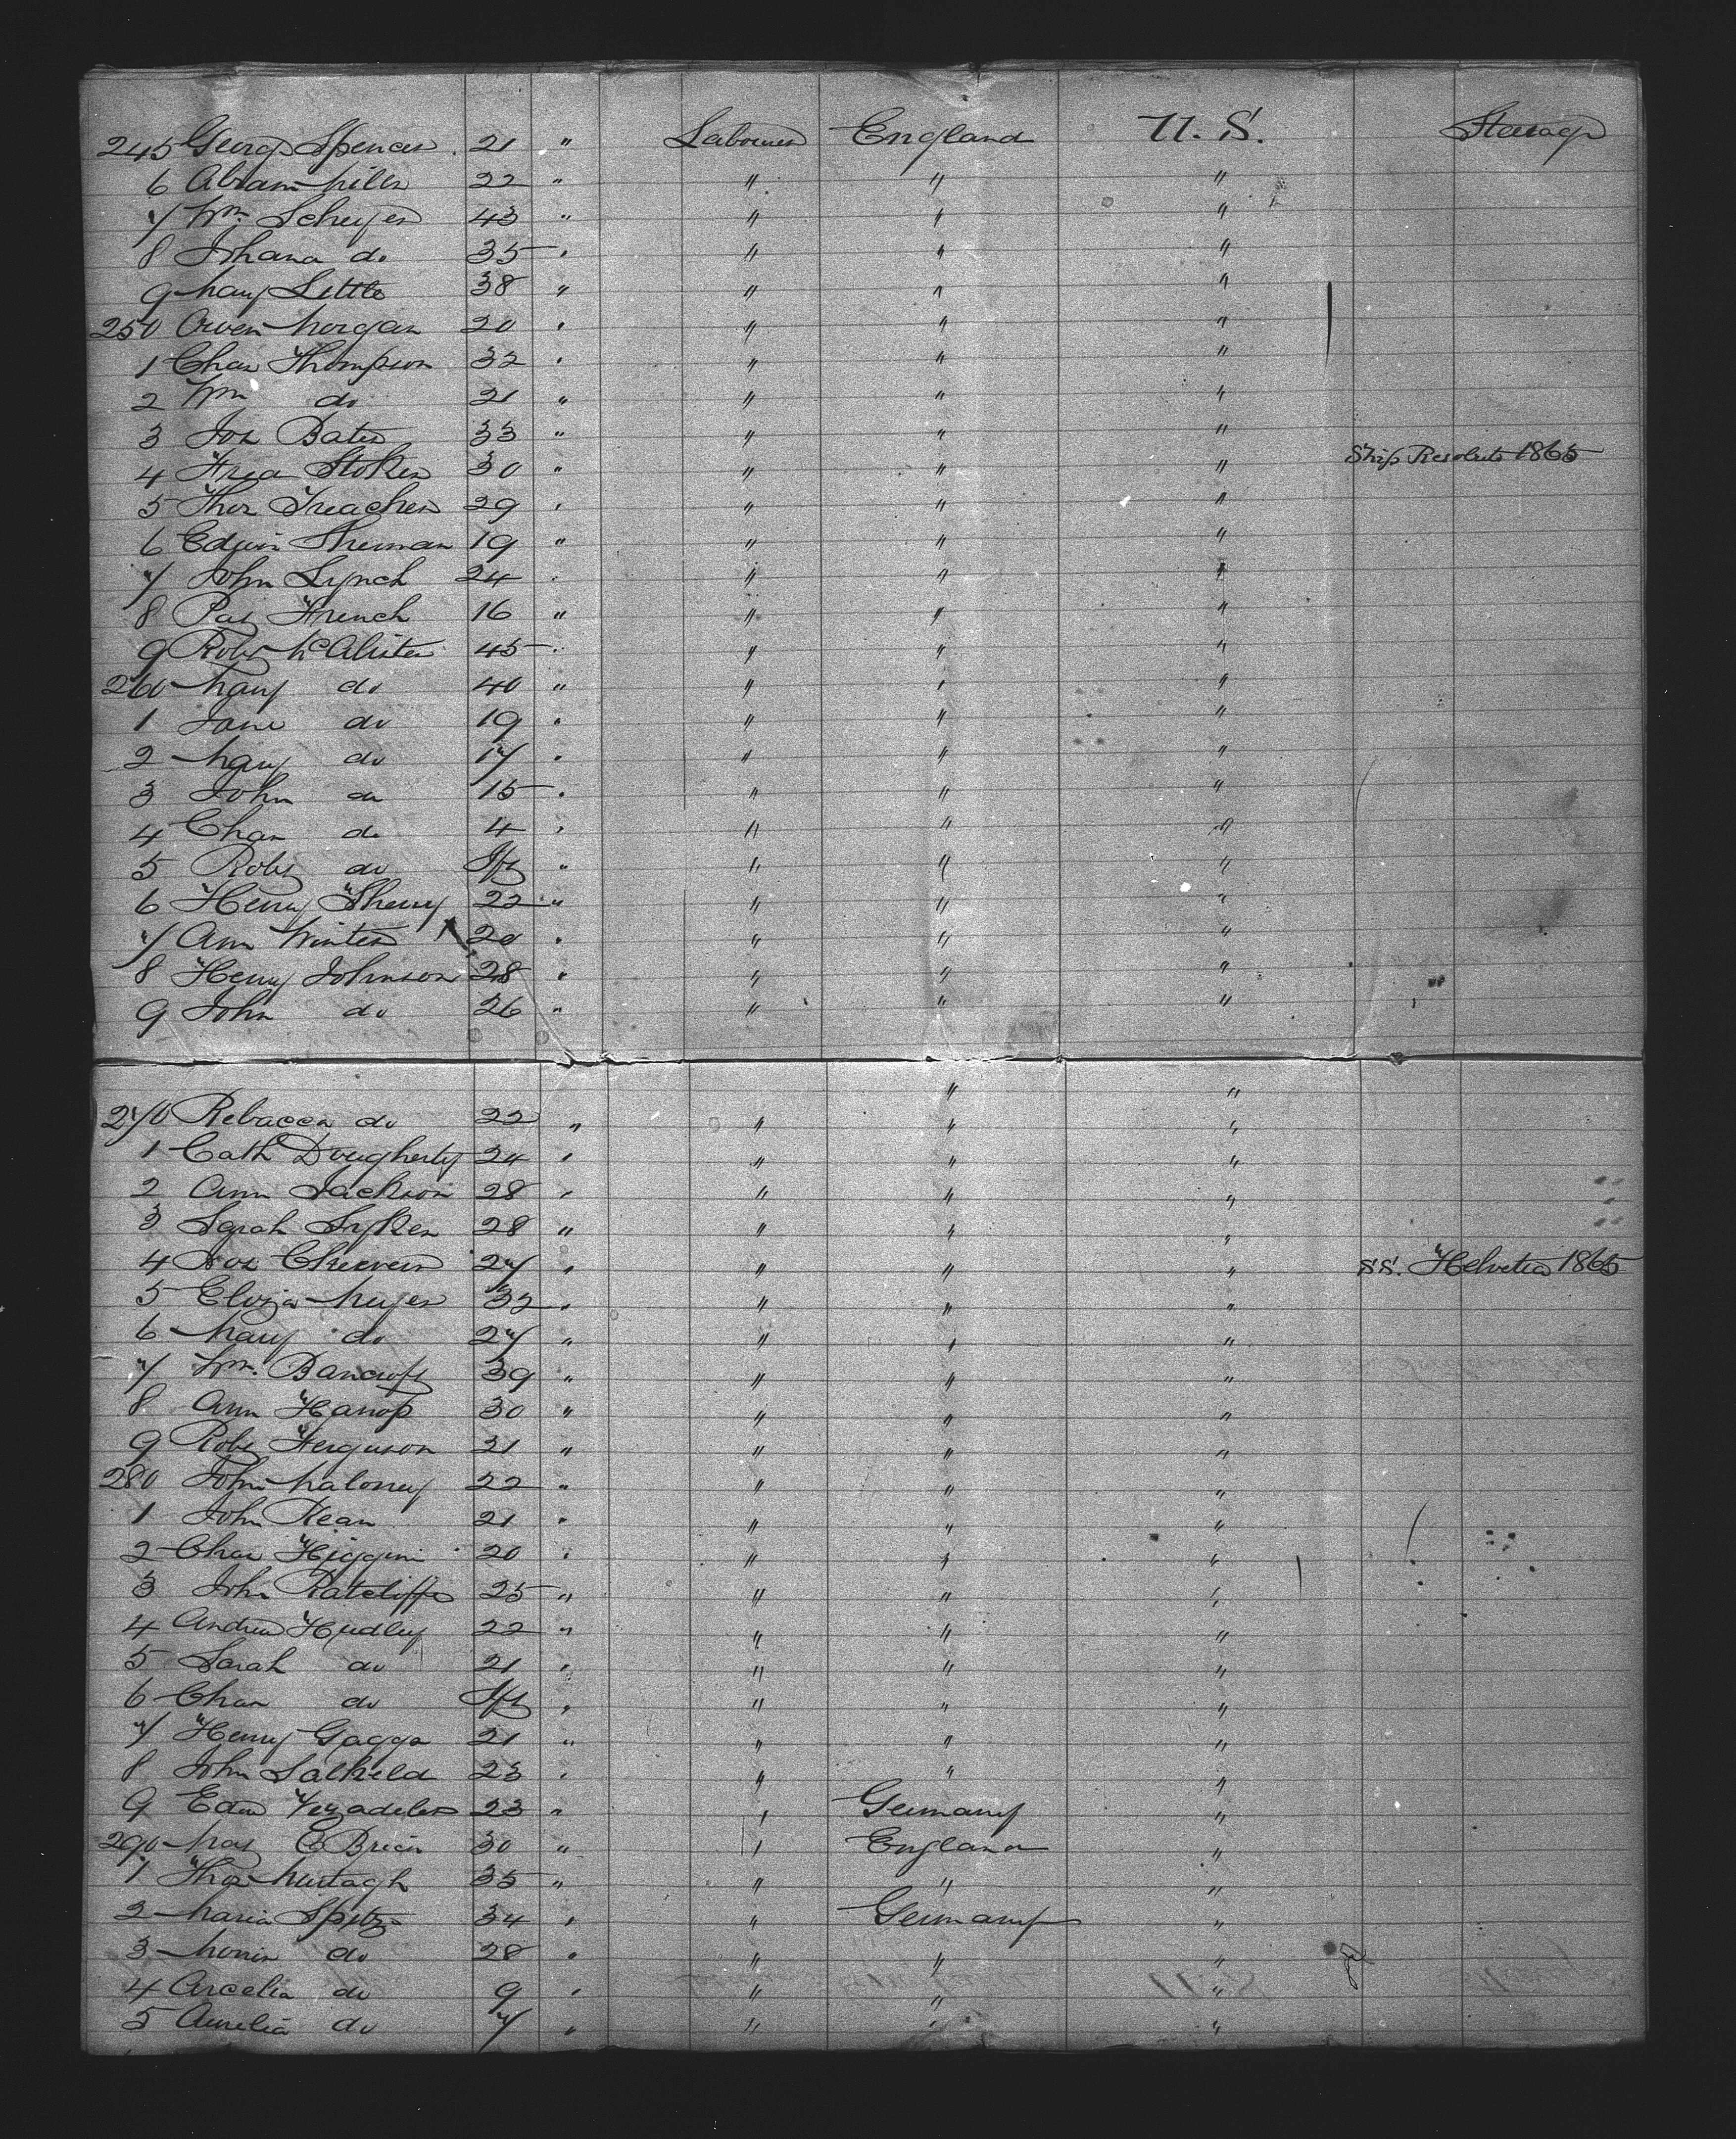 245 George Spencer 21 " Labourer England U.S. Steerage
6 Abram Miller 22 " " " "
7 Wm Schuyer 43 " " " "
8 Johana do 35 " " " "
9 Mary Little 38 " " " "
250 Owen Morgan 20 " " " "
1 Chas Thompson 32 " " " "
2 Wm do 21 " " " "
3 Jos Bates 33 " " " "
4 Stokes 30 " " " " Ship Resolute 1865
5 Thos Treacher 29 " " " "
6 Edwin Sherman 19 " " " "
7 John Lynch 24 " " " "
8 Pat French 16 " " " "
9 Robt McAlister 45 " " " "
260 Mary do 40 " " " "
1 Jane do 19 " " " "
2 Mary do 17 " " " "
3 John do 15 " " " "
4 Chas do 4 " " " "
5 Robt do Inft " " " "
6 Henry Sherry 22 " " " "
7 Ann Winters 20 " " " "
8 Henry Johnson 28 " " " "
9 John do 26 " " " "
" "
270 Rebacca do 22 " " " "
1 Cath Dougherty 24 " " " "
2 Ann Jackson 28 " " " "
3 Sarah Sykes 28 " " " "
4 Jos 27 " " " " SS. Helvetia 1865
5 Eliza Meyer 32 " " " "
6 Mary do 27 " " " "
7 Wm. Bancroft 39 " " " "
8 Ann Hanop 30 " " " "
9 Robt Ferguson 21 " " " "
280 John Maloney 22 " " " "
1 John Kean 21 " " " "
2 Chas Higgins 20 " " " "
3 John Ratcliffe 25 " " " "
4 Andrew Hudley 22 " " " "
5 Sarah do 21 " " " "
6 Chas do Inft " " " "
7 Henry Gaggs 21 " " " "
8 John Salkeld 23 " " " "
9 23 " " Germany "
290 O Brien 30 " " England "
1 Thos Murtagh 35 " " " "
2 Maria Spitz 34 " " Germany "
3 do 28 " " " "
4 Arcelia do 9 " " " "
5 Aurelia do 7 " " " "